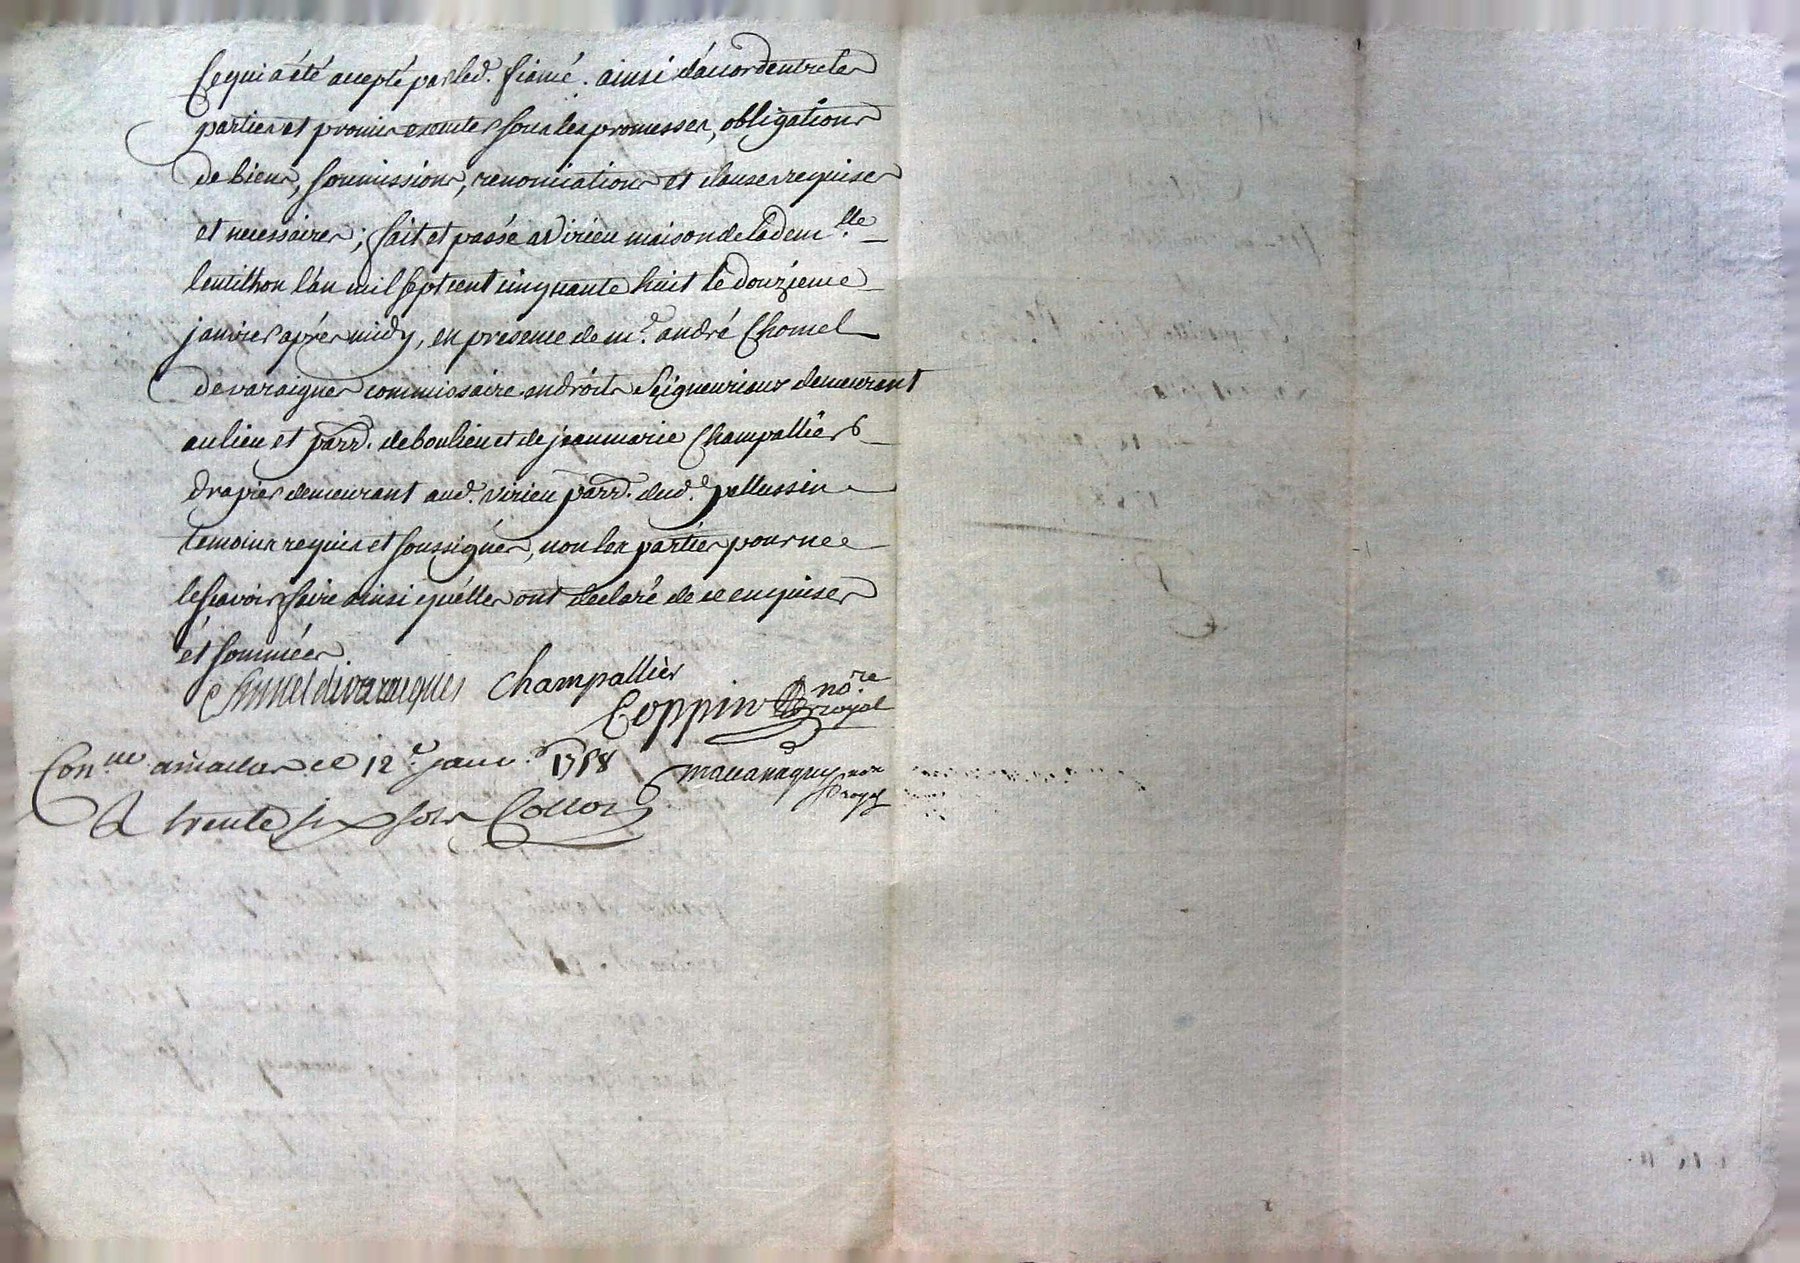 Ce qui a été accepté par led. fiancé. ainsi d'accord entre les
parties et promis executer sous les promesses, obligations
de biens, soumissions, renonciations et clauses requises
et necessaires; fait et passé a Virieu maison de lade dem.lle
Lentilhon l'an mil sept cent cinquante huit le douzieme
janvier aprés midy, en presence de m.e andré Chomel
de varaignes commissaire en droits Seigneuriaux demeurant
au lieu et parr. de boulieu et de jean marie Champallier
drapier demeurant aud. Virieu parr. dud. pellussin
temoins requis et soussignés, non les parties pour ne
le sçavoir faire ainsi qu'elles ont declaré de ce enquises
et sommées
Chomel de varaignes Champallier
Coppin no.re royal
Con.lle a ce 12.e janv. 1758 no.re royal
A trente six sols